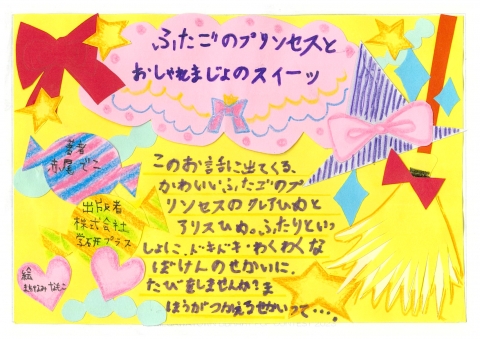 ふたごのプリンセスと
おしゃれまじょのスイーツ
著者
赤尾でこ
出版者
株式会社
学研プラス
絵
このお話に出てくる、
かわいいふたごのプ
リンセスのクレアひめと
アリスひめ。ふたりといっ
しょに、ドキドキ・わくわくな
ぼけんのせかいに、
たびをしませんか?ま
ほうがつかえるせかいって・・・。